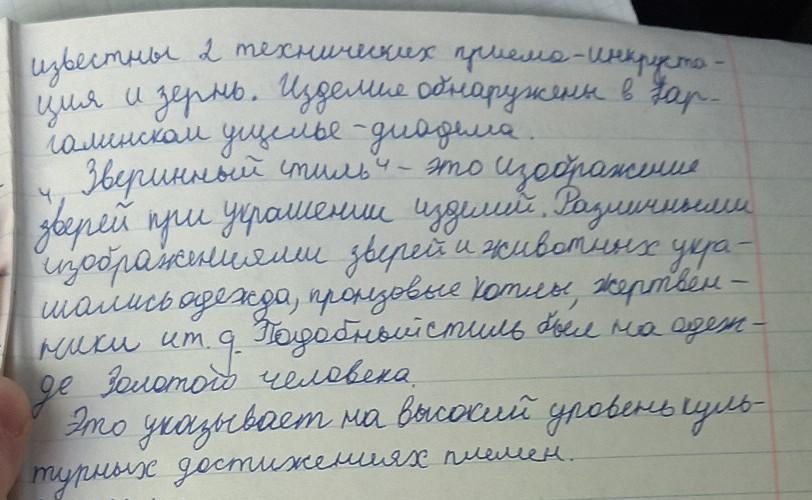 известны 2 технических приема-инкруста-
ция и зернь. Изделие обнаружены в Кар-
галинском ущелье-диадема.
"Звериный стиль" - это изображение
зверей при украшении изделий. Различными
изображениями зверей и животных укра-
шались одежда, пронзовые котлы, жертвен-
ники и т. д. Подобный стиль был на одеж-
де Золотого человека.
Это указывает на высокий уровень куль-
турных достижениях племен.